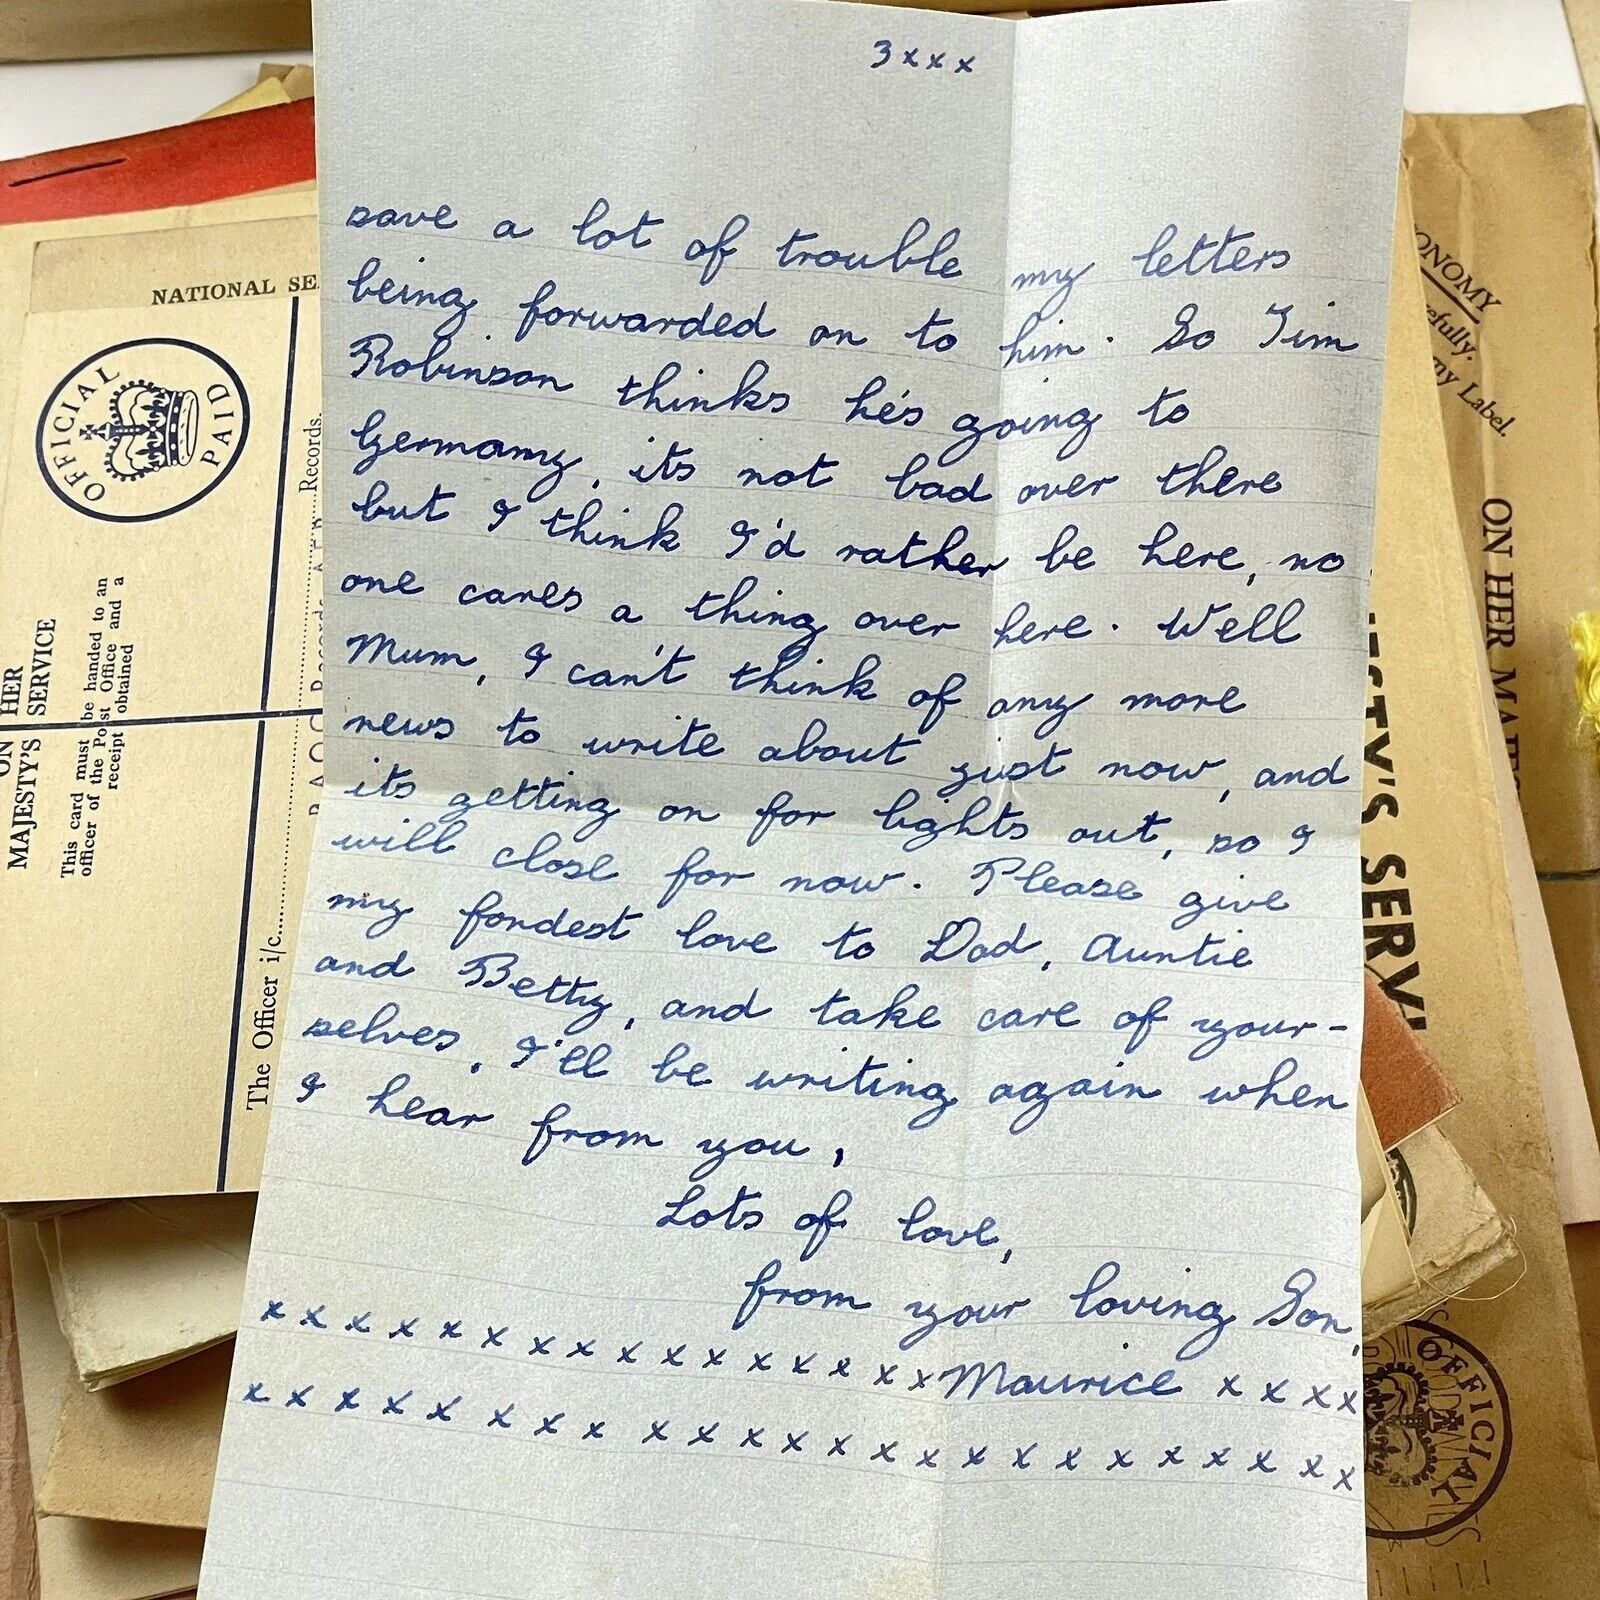 3 x x x
save a lot of trouble my letters
being forwarded on to him. So Tim
Robinson thinks he's going to
Germany, its not bad over there
but I think I'd rather be here, no
one cares a thing over here. Well
Mum, I can't think of any more
news to write about just now, and
its getting on for lights out, so I
will close for now. Please give
my fondest love to Dad, Auntie
and Betty, and take care of your-
selves, I'll be writing again when
I hear from you,
Lots of love,
from your loving Son,
x x x x x x x x x x x x x x x x Maurice x x x x
x x x x x x x x x x x x x x x x x x x x x x x x
NATIONAL SE
OFFICIAL PAID
ON HER
MAJESTY'S SERVICE
This card must be handed to an
officer of the Post Office and a
receipt obtained
The Officer i/c
Records
R A O C Records
ONOMY
efully.
my Label.
ON HER MAJES
JESTY'S SERVI
OFFICIAL